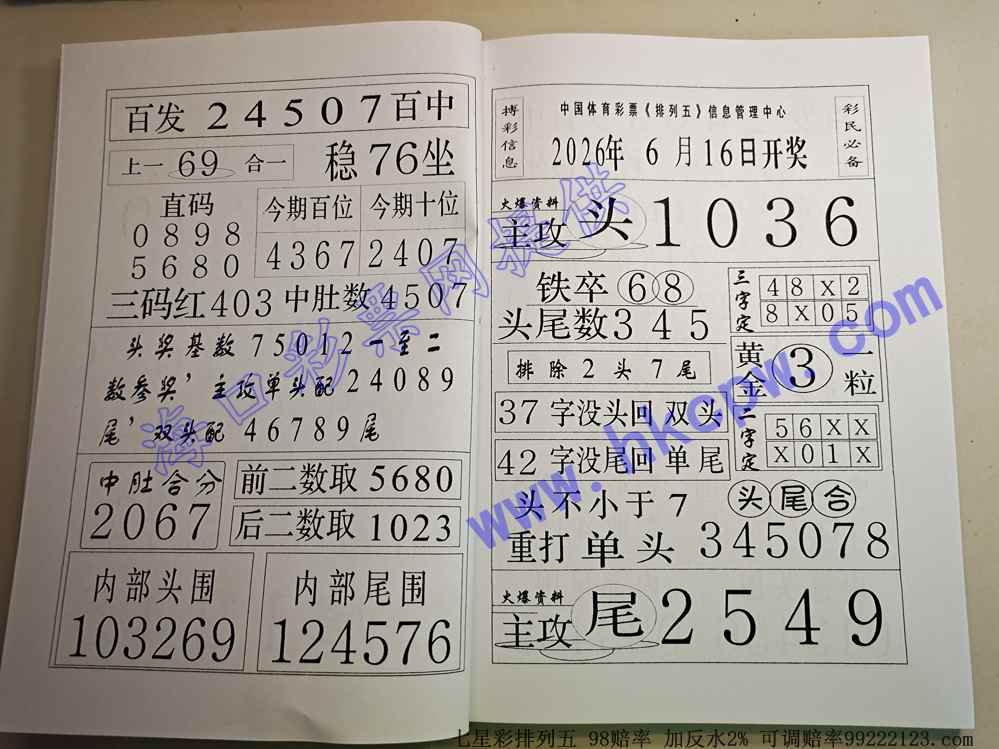 百发 24507 百中
上一 69 合一 稳 76 坐
直码
0 8 9 8
5 6 8 0
今期百位 今期十位
4367 2407
三码红 403 中肚数 4507
头奖基数 75012 一至二
数参奖，主攻单头配 24089
尾，双头配 46789 尾
中肚合分
2067
前二数取 5680
后二数取 1023
内部头围
103269
内部尾围
124576
搏彩信息
中国体育彩票《排列五》信息管理中心
2026年 6 月 16日开奖
彩民必备
火爆资料
主攻 头 1 0 3 6
铁卒 6 8
头尾数 3 4 5
三字定
4 8 X 2
8 X 0 5
排除 2 头 7 尾
黄金 3 一粒
37 字没头回 双头
42 字没尾回 单尾
二字定
5 6 X X
X 0 1 X
头 不小于 7
头尾合
重打 单头 345078
火爆资料
主攻 尾 2 5 4 9
海口彩票网提供
www.hkcpw.com
七星彩排列五 98赔率 加反水2% 可调赔率99222123.com